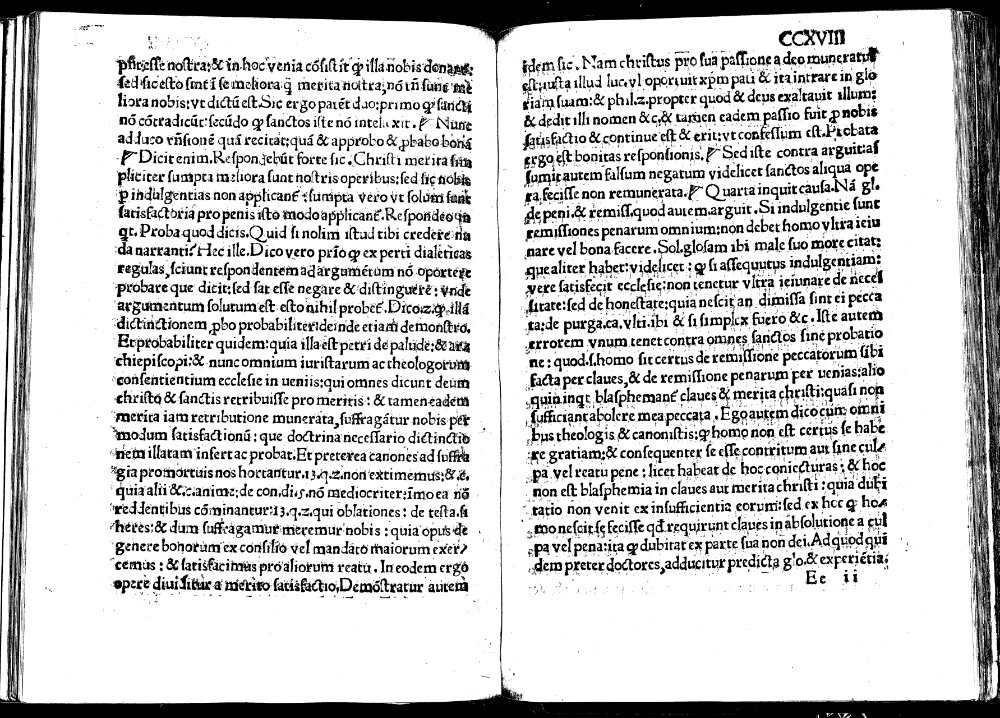 esse nostra: & in hoc venia cõsistit ꝙ illa nobis donans:
sed sic esto sint ĩ se meliora q̃ merita nostra: nõ tñ sunt me
liora nobis: vt dictũ est. Sic ergo parẽt duo: primo ꝙ sancti
nõ cõtradicũt: secũdo ꝙ sanctos iste nõ intelexit. Nunc
adduco rñsionẽ quã recitat: quã & approbo & ꝓbabo bonã
Dicit enim. Respondebũt forte sic. Christi merita sim
pliciter sumpta meliora sunt nostris operibus: sed sic nobis
ꝑ indulgentias non applicanẽ: sumpta vero vt solum sunt
satisfactoria pro penis isto modo applicanẽ. Respondeo in
qt. Proba quod dicis. Quid si nolim istud tibi credere nu
da narranti? Hec ille. Dico vero prĩo ꝙ ex perti dialeticas
regulas, sciunt respondentem ad argumẽtum nõ oportere
probare que dicit: sed sat esse negare & distinguere: vnde
argumentum solutum est esto nihil probeẽ. Dico.2. ꝙ illã
dictinctionem ꝓbo probabiliter: deinde etiam demonstro.
Et probabiliter quidem: quia illa est petri de palude: & ar
chiepiscopi: & nunc omnium iuristarum ac theologorum
consentientium ecclesie in veniis: qui omnes dicunt deum
christo & sanctis retribuisse pro meritis: & tamen eadem
merita iam retributione munerata, suffragãtur nobis per
modum satisfactionũ: que doctrina necessario dictinctio
nem illatam infert ac probat. Et preterea canones ad suffra
gia pro mortuis nos hortantur.13.q.2. non extimemus: & c.
quia alii & c. anime: de con. di.5. nõ mediocriter: ĩmo ea nõ
reddentibus cõminantur: 13.q.2. qui oblationes: de testa. si
heres: & dum suffragamur meremur nobis: quia opus de
genere bonorum ex consilio vel mandato maiorum exer
cemus: & satisfacimus pro aliorum reatu. In eodem ergo
opere diuiditur a merito satisfactio, Demõstratur autem
CCXVIII
idem sic. Nam christus pro sua passione a deo muneratus
est: iusta illud luc. vl oportuit xpm pati & ita intrare in glo
riam suam: & phil.2. propter quod & deus exaltauit illum:
& dedit illi nomen &c, & tamen eadem passio fuit ꝓ nobis
satisfactio & continue est & erit: vt confessum est. Probata
ergo est bonitas responsionis. Sed iste contra arguit: as
sumit autem falsum negatum videlicet sanctos aliqua ope
ra fecisse non remunerata. Quarta inquit causa. Nã gl.
de peni. & remiss. quod autem. arguit. Si indulgentie sunt
remissiones penarum omnium: non debet homo vltra ieiu
nare vel bona facere. Sol. glosam ibi male suo more citat:
que aliter habet: videlicet: ꝙ si assequutus indulgentiam:
vere satisfecit ecclesie: non tenetur vltra ieiunare de neces
sitate: sed de honestate: quia nescit an dimissa sint ei pecca
ta: de purga. ca. vlti. ibi & si simplex fuero &c. Iste autem
errorem vnum tenet contra omnes sanctos sine probatio
ne: quod. s. homo sit certus de remissione peccatorum sibi
facta per claues, & de remissione penarum per uenias: alio
quin inqt blasphemanẽ claues & merita christi: quasi non
sufficiant abolere mea peccata. Ego autem dico cum omni
bus theologis & canonistis: ꝙ homo non est certus se habe
re gratiam: & consequenter se esse contritum aut sine cul
pa vel reatu pene: licet habeat de hoc coniecturas: & hoc
non est blasphemia in claues aut merita christi: quia dubi
tatio non venit ex insufficientia eorum: sed ex hec ꝙ ho
mo nescit se fecisse qd requirunt claues in absolutione a cul
pa vel pena: ita ꝙ dubitat ex parte sua non dei. Ad quod qui
dem preter doctores, adducitur predicta glo. & experiẽtia:
Ee ii